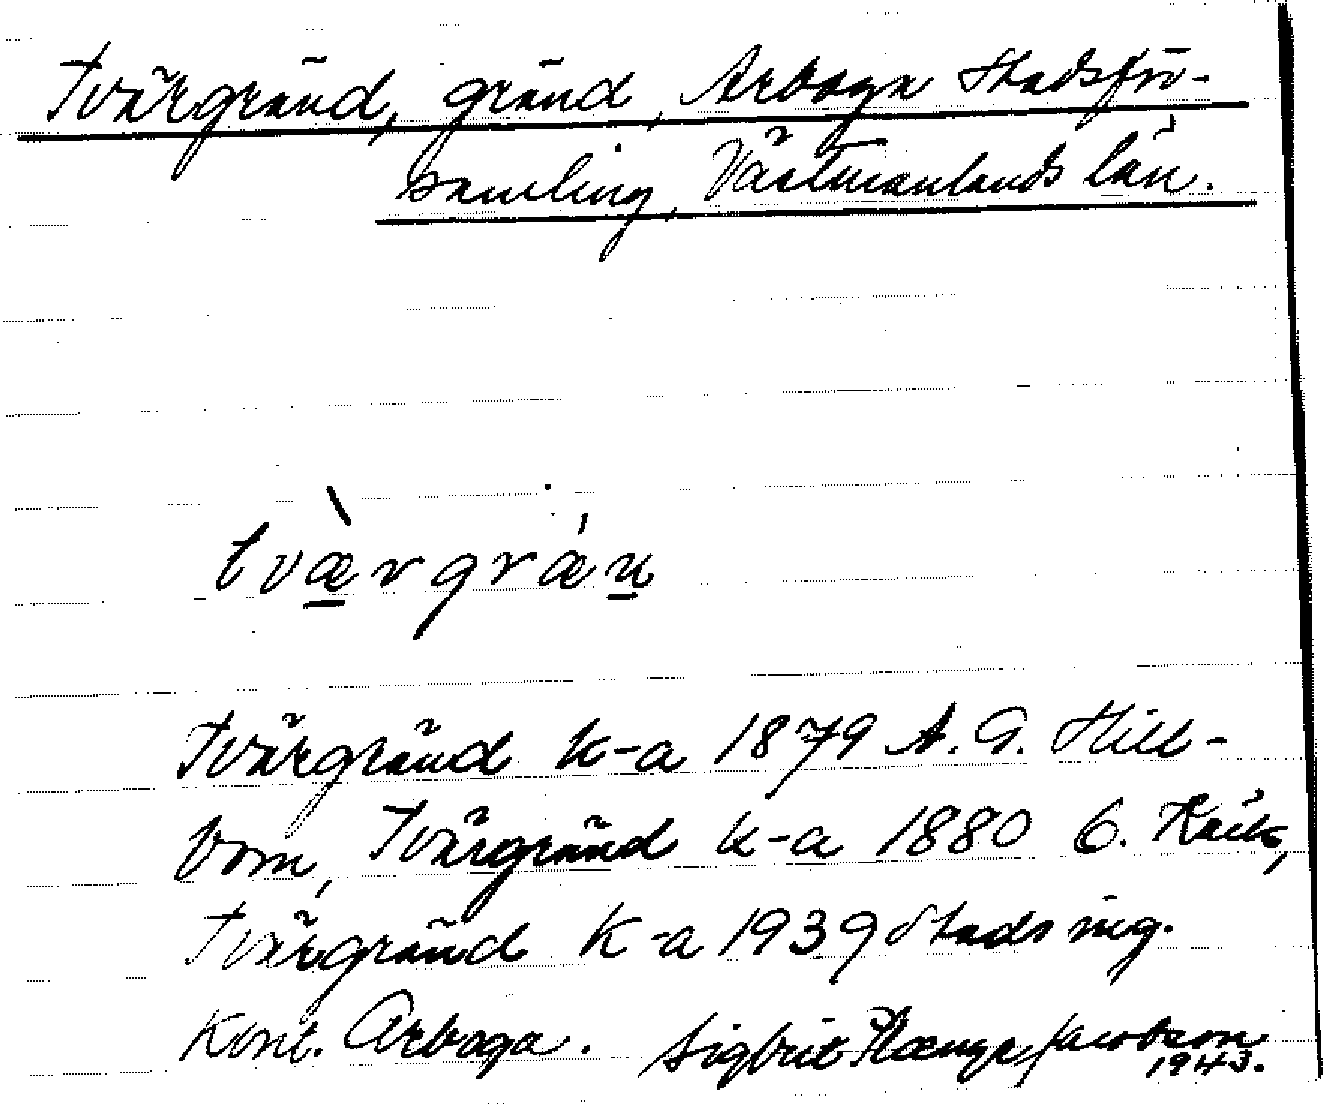 Tvärgränd, gränd, Arboga Stadsför-
samling, Västmanlands län.
tvæ̀rgrǽn
Tvärgränd k-a 1879 A. G. Hill-
bom, Tvärgränd k-a 1880 G. Käck,
Tvärgränd K-a 1939 Stads ing.
Kont. Arboga. Sigbrit Plænge Jacobson
1943.